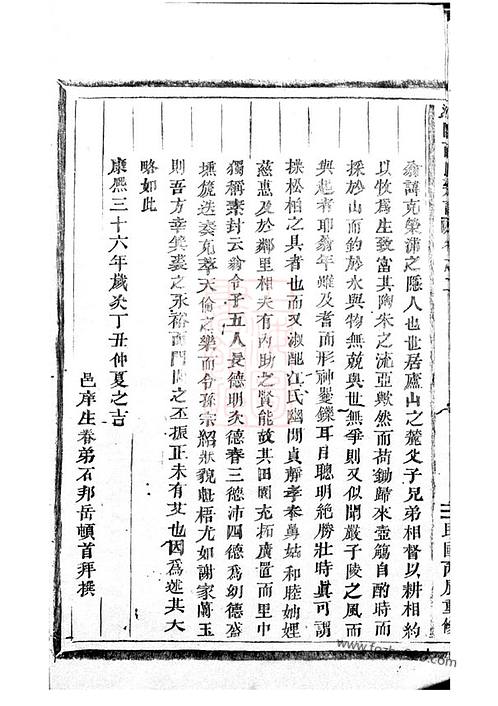 翁諱克榮沸之隱人也世居廬山之麓父子兄弟相督以耕相約
以牧爲生致富其陶朱之流亞歟然而荷鋤歸來壺觴自酌時而
採於山而釣於水與物無競與世無爭則又似聞嚴子陵之風而
與起者耶翁年雖及耆而形神矍鑠耳目聰明絶勝壯時眞可謂
操松柏之具者也而又淑配江氏幽閒貞靜孝奉舅姑和睦妯娌
慈惠及於鄉里相夫有內助之賢能故其田園充拓廣置而里中
獨稱素封云翁令子五人長德明次德春三德沛四德爲幼德盛
壎箎迭奏克萃天倫之樂而令孫宗紹狀貌魁梧尤如謝家蘭玉
則吾方幸箕裘之永裕而門閭之丕振正未有艾也因爲述其大
略如此
康熙三十六年歲次丁丑仲夏之吉
邑庠生眷弟石邦岳頓首拜撰
民國丙辰重修